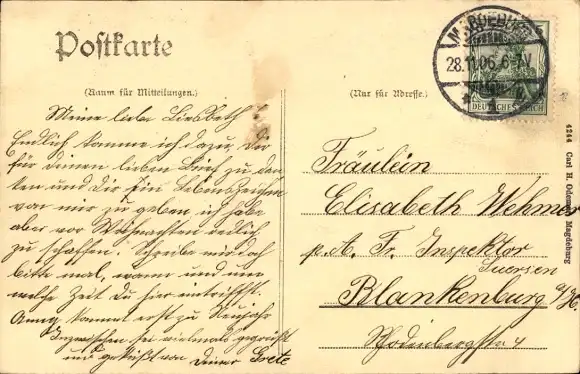 Postkarte
(Raum für Mitteilungen.)
Meine liebe Liesbeth!
Endlich komme ich dazu, Dir
für Deinen lieben Brief zu dan-
ken und Dir ein Lebenszeichen
von mir zu geben, ich habe
aber vor Weihnachten redlich
zu schaffen. Schreibe mir doch
bitte mal, wann und um
welche Zeit Du hier eintriffst.
Anna kommt erst zu Neujahr
Inzwischen sei vielmals gegrüßt
und geküßt von Deiner Grete
(Nur für Adresse.)
MAGDEBURG
28.11.06. 6-7V
DEUTSCHES REICH
5
Fräulein
Elisabeth Wehmer
p. A. Fr. Inspektor
Blankenburg a/H.
4244 Carl H. Odemar, Magdeburg